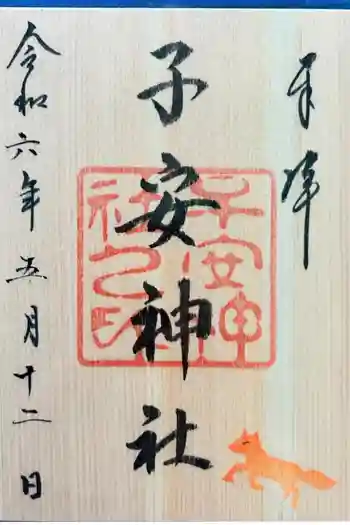 奉拝
子安神社
令和六年五月十二日
子安神
社之印